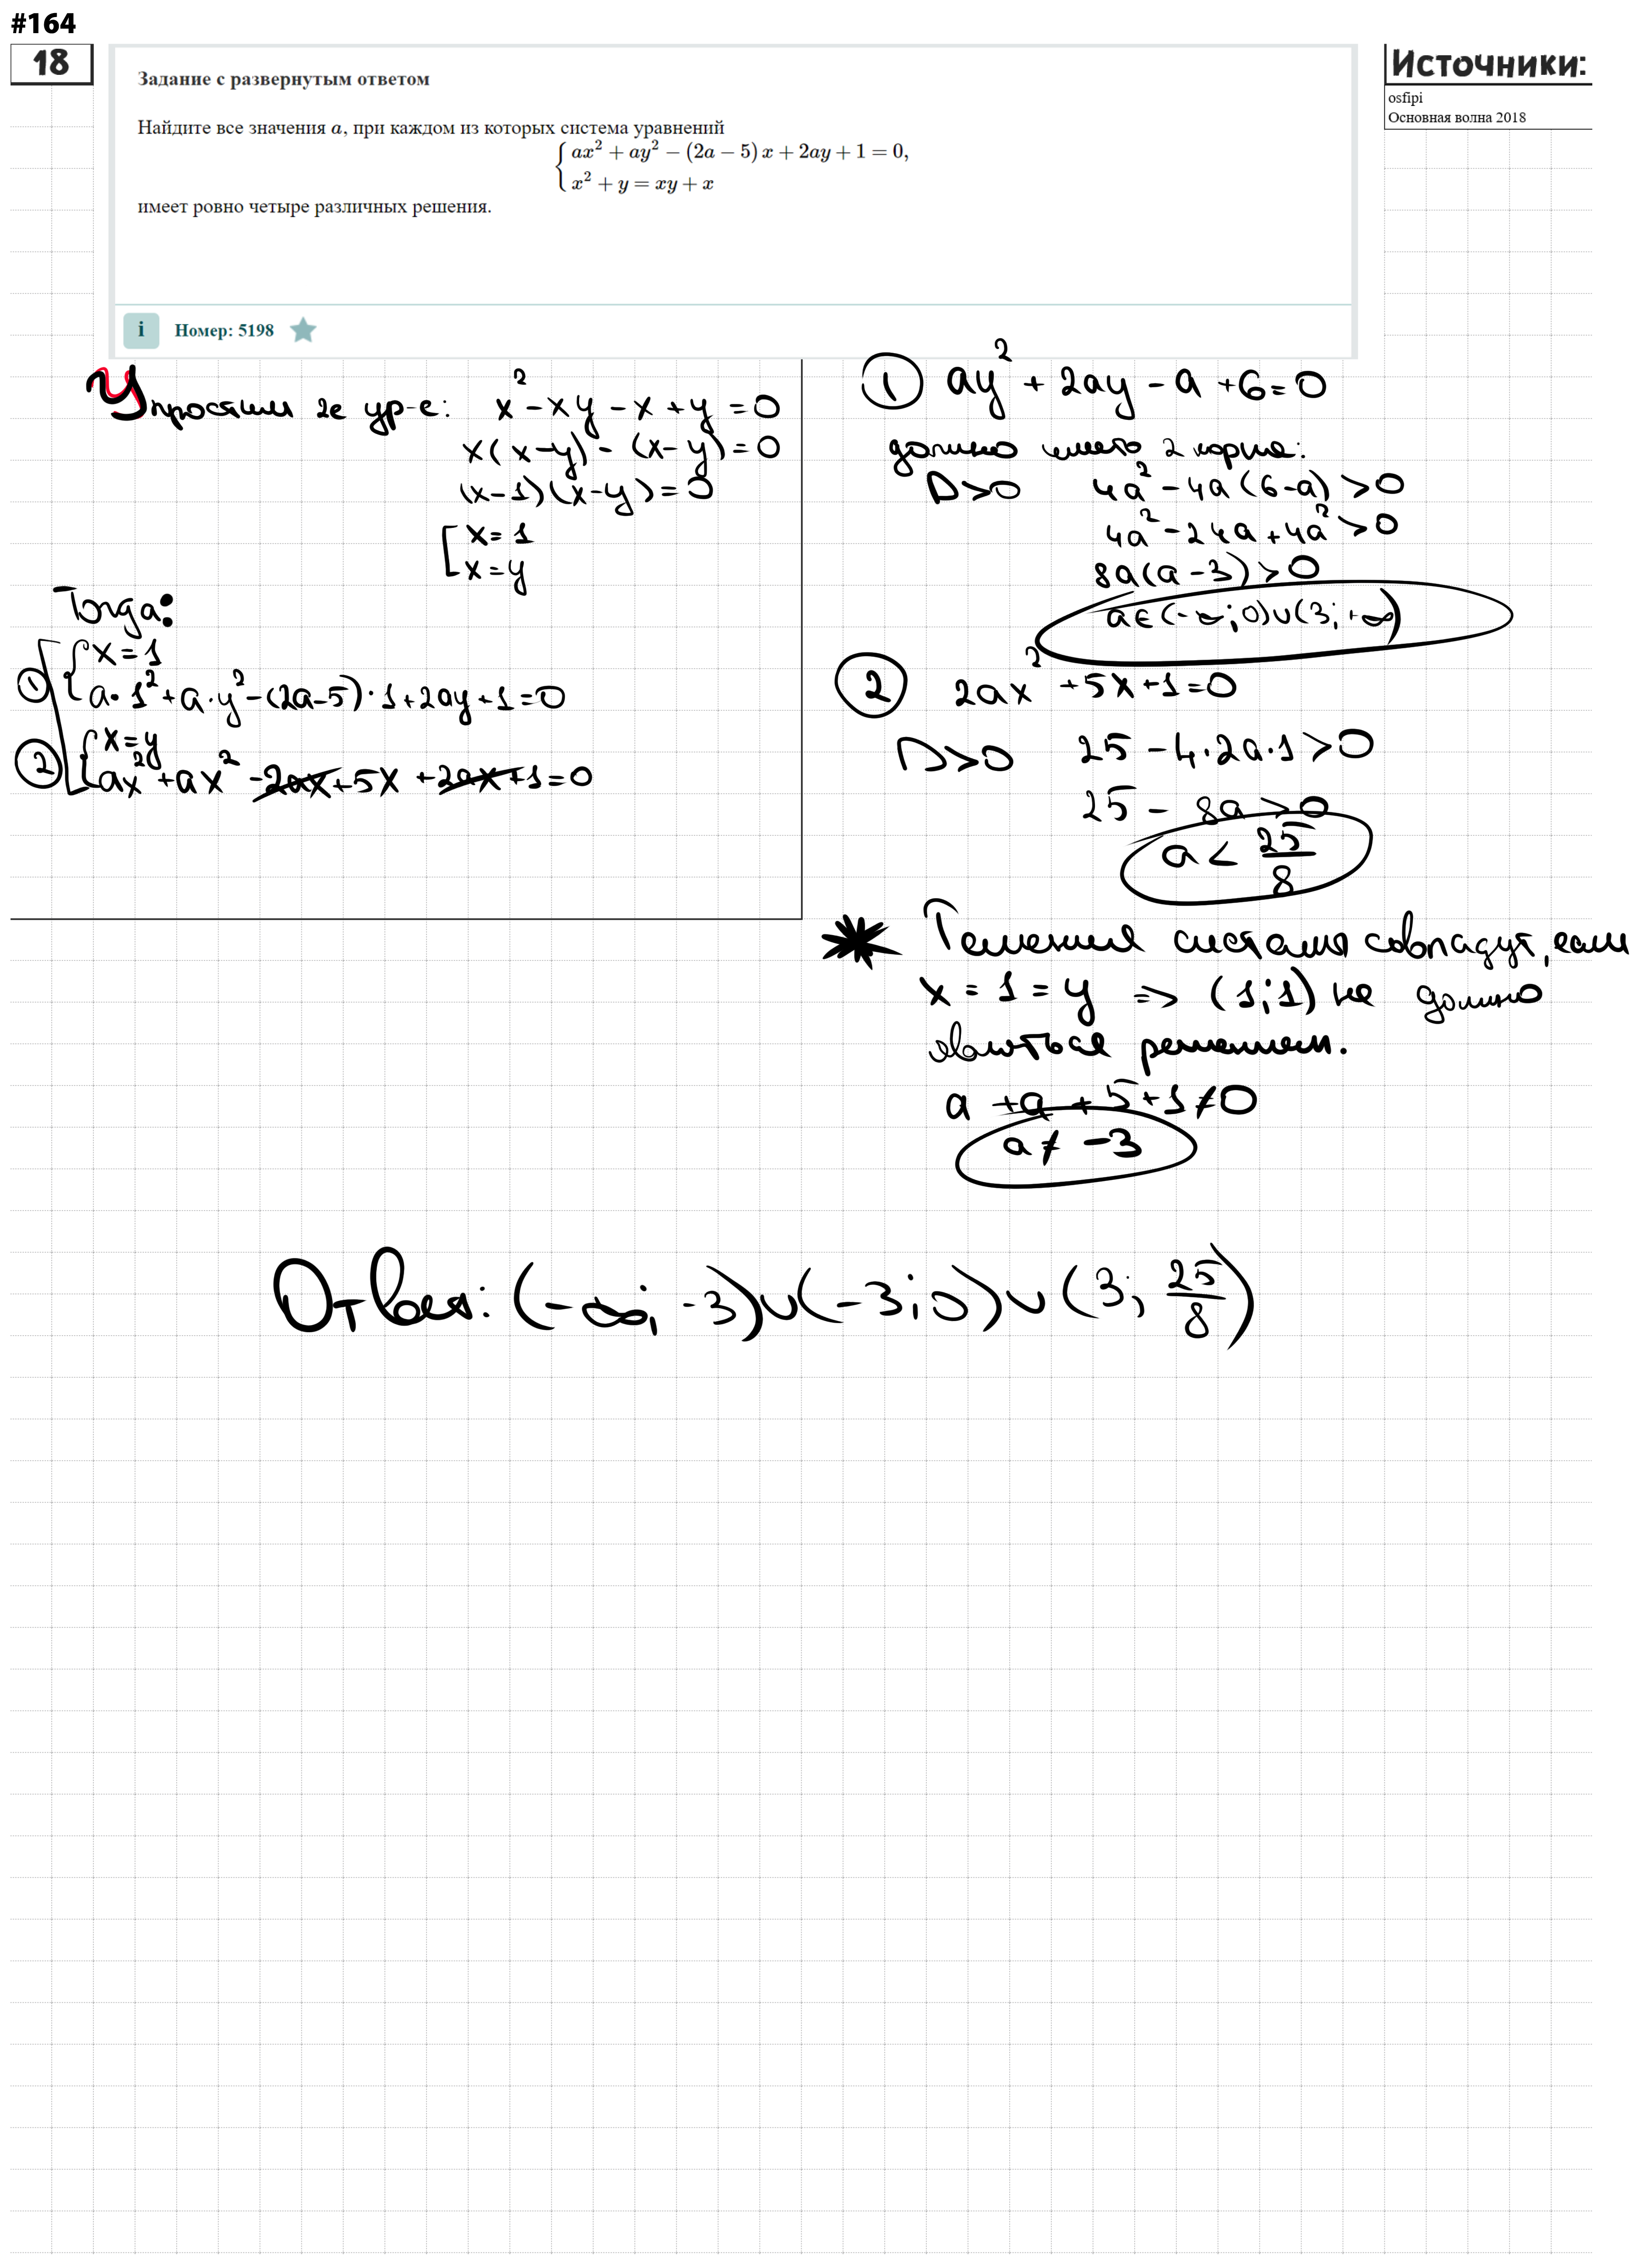 #164
18
Источники:
osfipi
Основная волна 2018
Задание с развернутым ответом
Найдите все значения a, при каждом из которых система уравнений
{ ax² + ay² − (2a − 5) x + 2ay + 1 = 0,
x² + y = xy + x
имеет ровно четыре различных решения.
i Номер: 5198
Упростим 2е ур-е: x² - xy - x + y = 0
x(x-y) - (x-y) = 0
(x-1)(x-y) = 0
[ x = 1
x = y
Тогда:
① { x = 1
a·1² + a·y² - (2a-5)·1 + 2ay + 1 = 0
② { x = y
ax² + ax² - 2ax + 5x + 2ax + 1 = 0
① ay² + 2ay - a + 6 = 0
должно иметь 2 корня:
D>0 4a² - 4a(6-a) > 0
4a² - 24a + 4a² > 0
8a(a-3) > 0
a ∈ (-∞; 0) ∪ (3; +∞)
② 2ax² + 5x + 1 = 0
D>0 25 - 4·2a·1 > 0
25 - 8a > 0
a < 25/8
Решения системы совпадут, если
x = 1 = y => (1; 1) не должно
являться решением.
a + a + 5 + 1 ≠ 0
a ≠ -3
Ответ: (-∞; -3) ∪ (-3; 0) ∪ (3; 25/8)